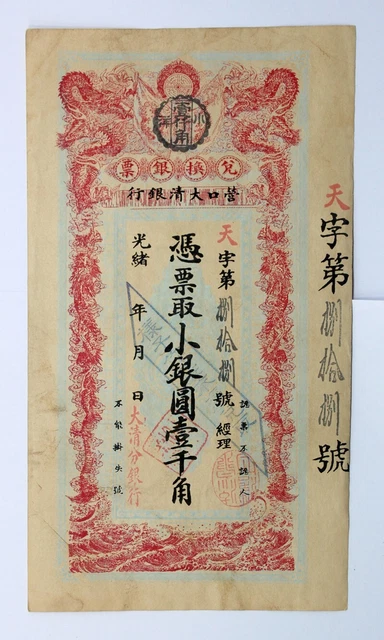 壹千角
兌換銀票
營口大清銀行
天字第捌拾捌號
認票不認人
天字第捌拾捌號 經理
憑票取小銀圓壹千角
光緒 年 月 日
大清分銀行
不能掛失號